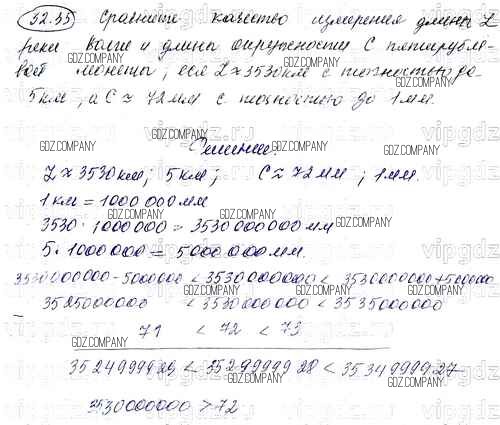 32.35 Сравните качество измерения длины L
реки Волги и длины окружности C пятирубле-
вой монеты, если L ≈ 3530 км с точностью до
5 км, а C ≈ 72 мм с точностью до 1 мм.
GDZ.COMPANY
Решение.
L ≈ 3530 км; 5 км; C ≈ 72 мм; 1 мм.
1 км = 1000 000 мм
3530 · 1000 000 = 3530 000 000 мм
5 · 1000 000 = 5000 000 мм.
3530000000 - 5000000 < 3530000000 < 3530000000 + 5000000
3525000000 < 3530000000 < 3535000000
71 < 72 < 73
3524999929 < 3529999928 < 3534999927
3530000000 > 72